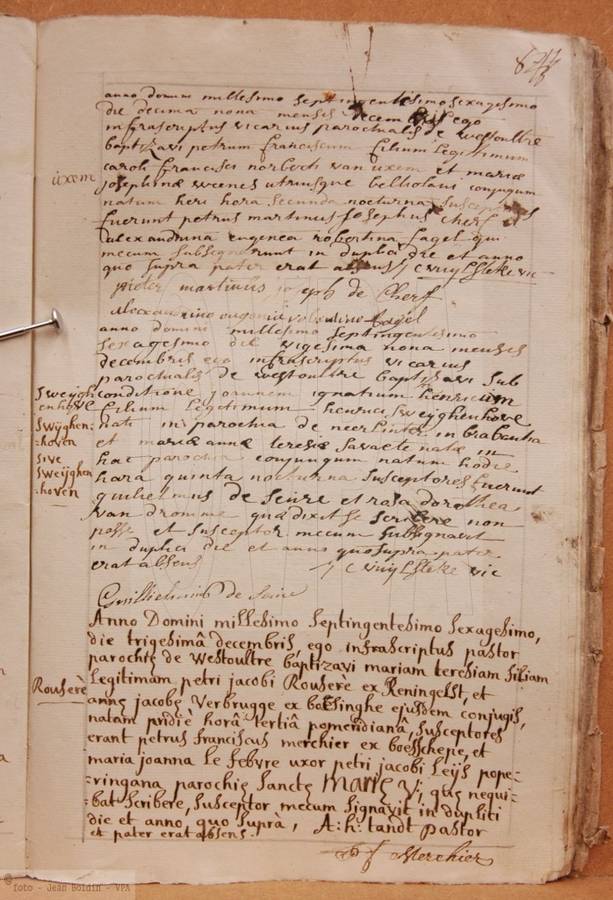 anno domini millesimo septingentesimo sexagesimo
die decima nona mensis decembris ego
infrascriptus vicarius parochialis de westoultre
baptizavi petrum franciscum filium legitimum
üxem
caroli francisci norberti van üxem et mariæ
josephinæ weenes utriusque belliolani conjugum
natum heri hora secunda nocturna susceptores
fuerunt petrus martinus Josephus cherf et
alexandrina eugenea robertina fagel qui
mecum subsignarunt in dupla die et anno
quo supra pater erat absens J C wuylsteke vic
pieter martinus joseph de Cherf
alexandrine eugenie fagel
anno domini millesimo septingentesimo
sexagesimo die vigesima nona mensis
decembris ego infrascriptus vicarius
parochialis de westoultre baptisavi sub
Sweijgh
enhove
Swijghen:
=hoven
sive
Sweijghen
=hoven
conditione joannem ignatium henricum
filium legitimum henrici Sweijghenhove
nati in parochia de neerlinter in brabantia
et mariæ annæ teresiæ Savaete natæ in
hac parochia conjugum natum hodie
hora quinta nocturna susceptores fuerunt
guilielmus de Seure et rosa dorothea
van dromme quæ dixit se scribere non
posse et susceptor mecum subsignavit
in duplici die et anno quo supra pater
erat absens J C wuylsteke vic
Guillielmus de Seure
Anno Domini millesimo septingentesimo sexagesimo,
die trigesimâ decembris, ego infrascriptus pastor
parochię de westoultre baptizavi mariam teresiam filiam
Rouserè
Legitimam petri jacobi Rouserè ex Reningelst, et
annę jacobę Verbrugge ex boesinghe ejusdem conjugis,
natam pridiè horâ tertiâ pomeridianâ, susceptores
erant petrus franciscus merchier ex boesschepe, et
maria joanna le febvre uxor petri jacobi Leijs pope-
=ringana parochię Sanctę Marię V; quę nequi-
=bat scribere, susceptor mecum signavit in duplici
die et anno, quo suprà, A: h: tandt pastor
et pater erat absens.
P f Merchier
© foto - Jean Boldin - VPA